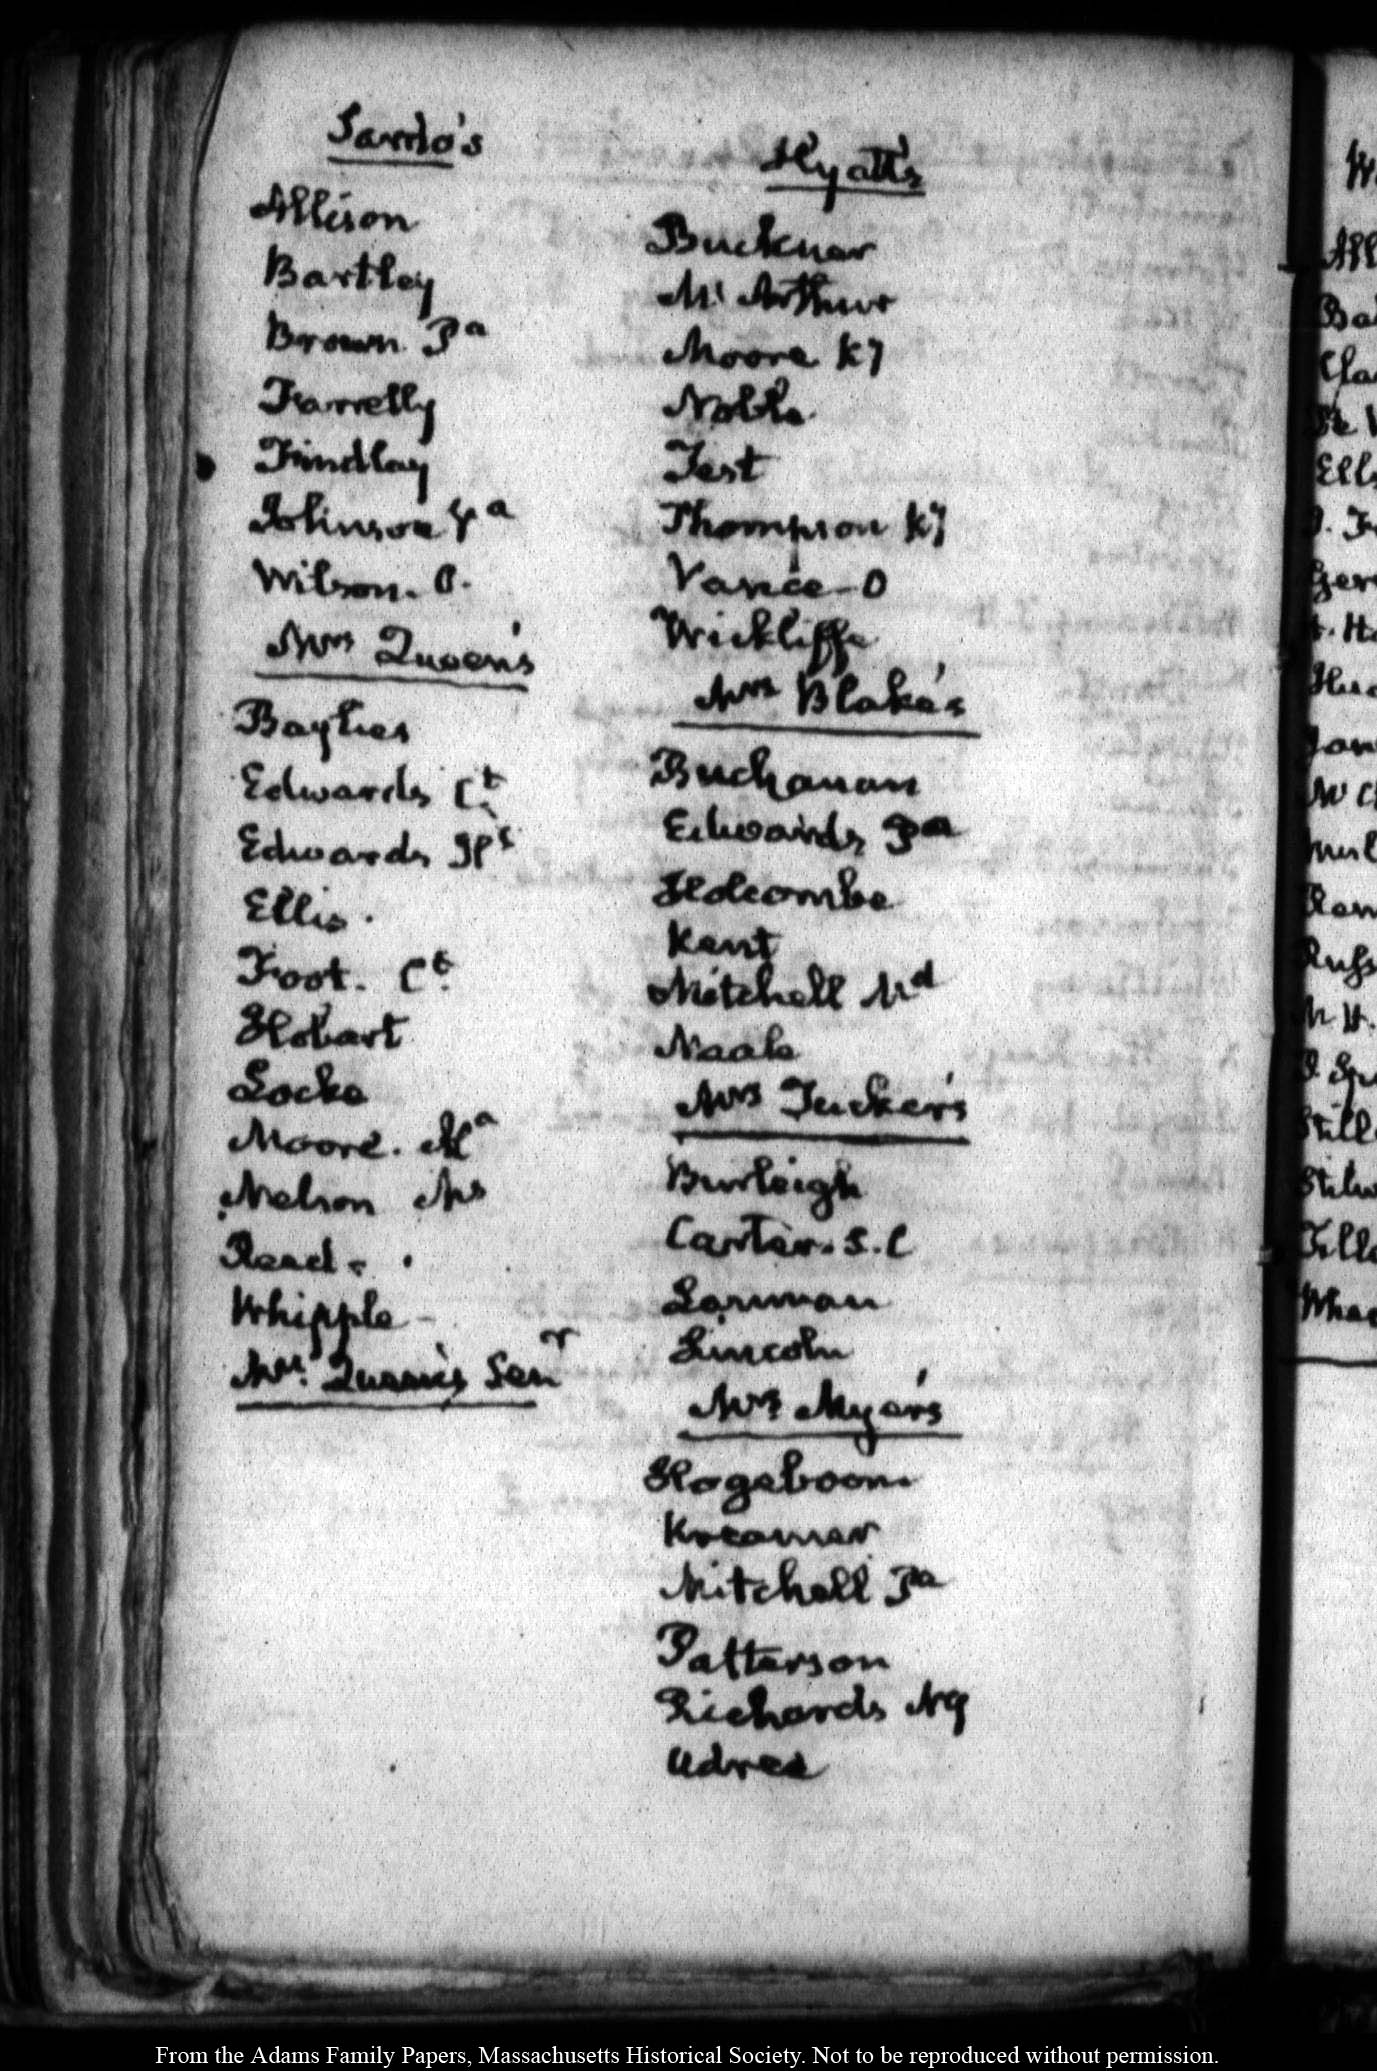 Sardo's
Allison
Bartley
Brown. Pa
Farrelly
Findlay
Johnson Va
Wilson. O.
Mrs Queen's
Baylies
Edwards Ct
Edwards
Ellis.
Foot. Ct.
Hobart
Locke
Moore. Ala
Nelson Ms
Read
Whipple
Mrs. Queen's Senr
Hyatt's
Buckner
Mc Arthur
Moore Ky
Noble
Test
Thompson Ky
Vance - O
Wickliffe
Mrs Blake's
Buchanan
Edwards Pa
Holcombe
Kent
Mitchell Md
Neale
Mrs Tucker's
Burleigh
Carter. S. C
Larman
Lincoln
Mrs Myer's
Hogeboom
Kreamer
Mitchell Pa
Patterson
Richards NY
Udree
From the Adams Family Papers, Massachusetts Historical Society. Not to be reproduced without permission.